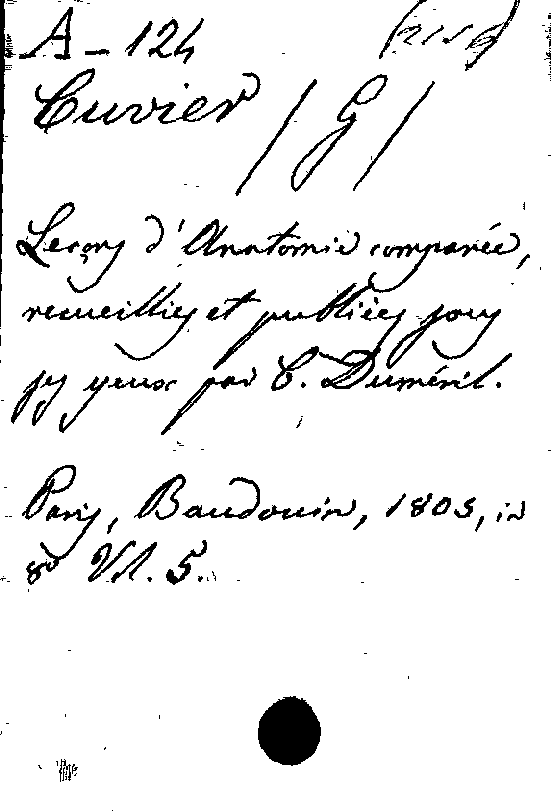 A - 124
Cuvier / G /
Leçons d'Anatomie comparée,
recueillies et publiées sous
ses yeux par C. Duméril.
Paris, Baudouin, 1805, in
8º Vol. 5.